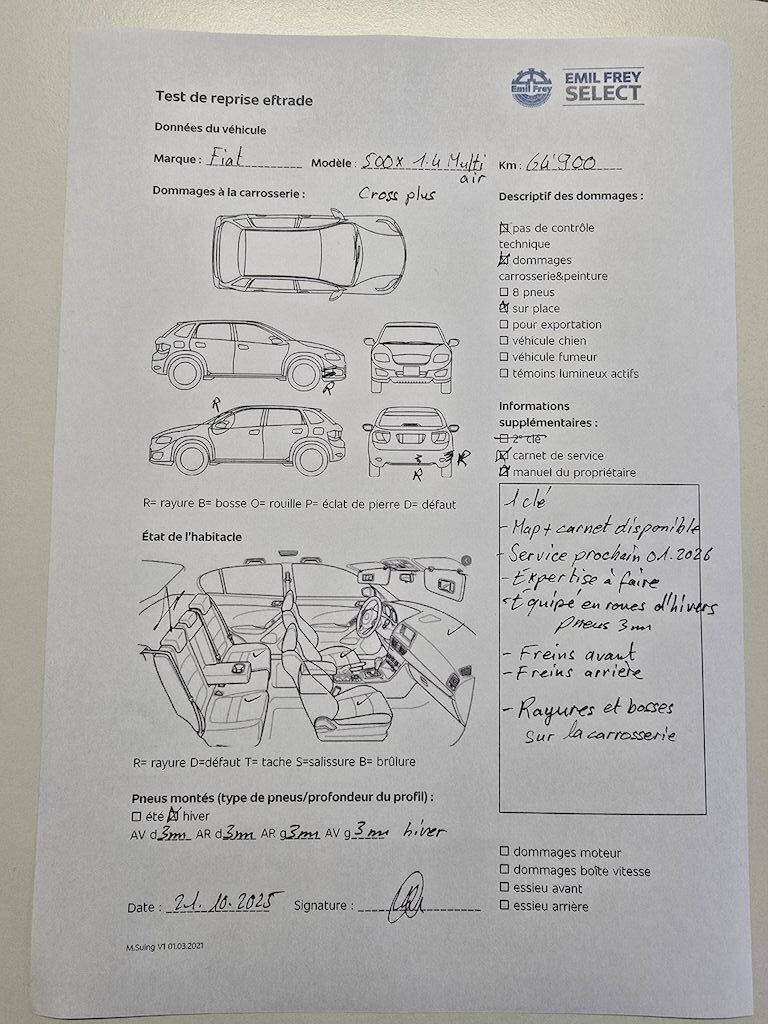 Test de reprise eftrade
Emil Frey
EMIL FREY
SELECT
Données du véhicule
Marque : Fiat Modèle : 500x 1.4 Multi
air
Km : 64'900
Dommages à la carrosserie : Cross plus
R
R
R
R
R= rayure B= bosse O= rouille P= éclat de pierre D= défaut
État de l'habitacle
R= rayure D=défaut T= tache S=salissure B= brûlure
Pneus montés (type de pneus/profondeur du profil) :
☐ été ☒ hiver
AV d 3mm AR d 3mm AR g 3mm AV g 3mm hiver
Date : 21.10.2025 Signature :
M.Suing V1 01.03.2021
Descriptif des dommages :
☒ pas de contrôle
technique
☒ dommages
carrosserie&peinture
☐ 8 pneus
☒ sur place
☐ pour exportation
☐ véhicule chien
☐ véhicule fumeur
☐ témoins lumineux actifs
Informations
supplémentaires :
☐ 2e clé
☒ carnet de service
☒ manuel du propriétaire
1 clé
- Map + carnet disponible
- Service prochain 01.2026
- Expertise à faire
- Équipé en roues d'hivers
pneus 3mm
- Freins avant
- Freins arrière
- Rayures et bosses
sur la carrosserie
☐ dommages moteur
☐ dommages boîte vitesse
☐ essieu avant
☐ essieu arrière